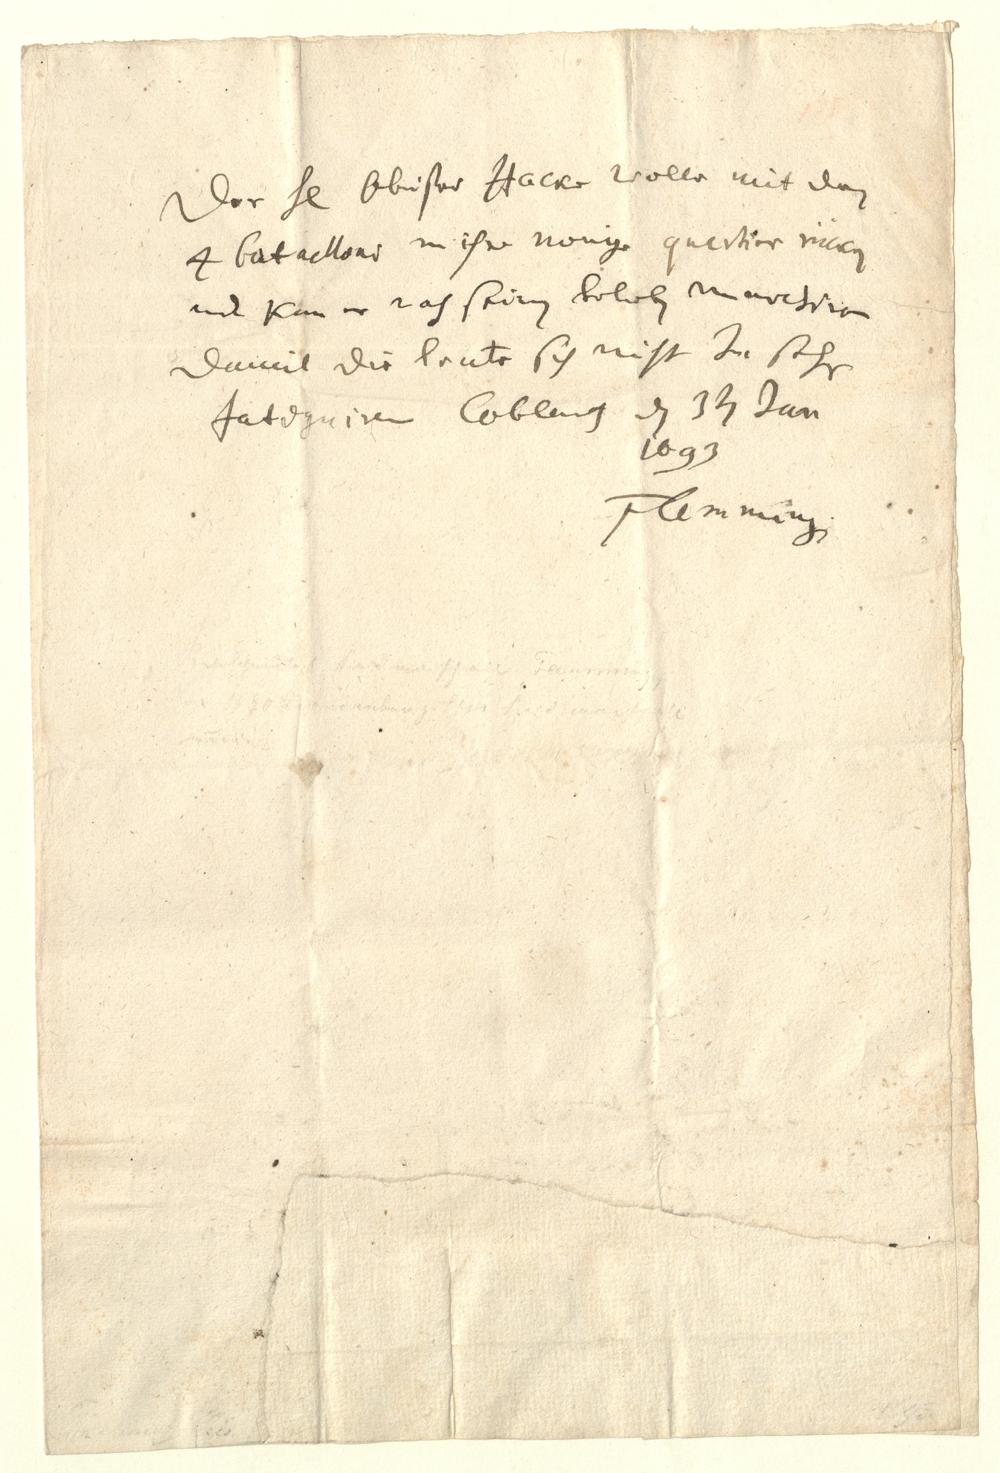 Der H Obrister Hacke wolle mit den
4 batallons in ihre vorige quartier rücken
und kan er nach seinen belieben marchiren
damit die leute sich nicht zu sehr
fatiguiren Coblentz den 3ten Jan
1693
Flemming